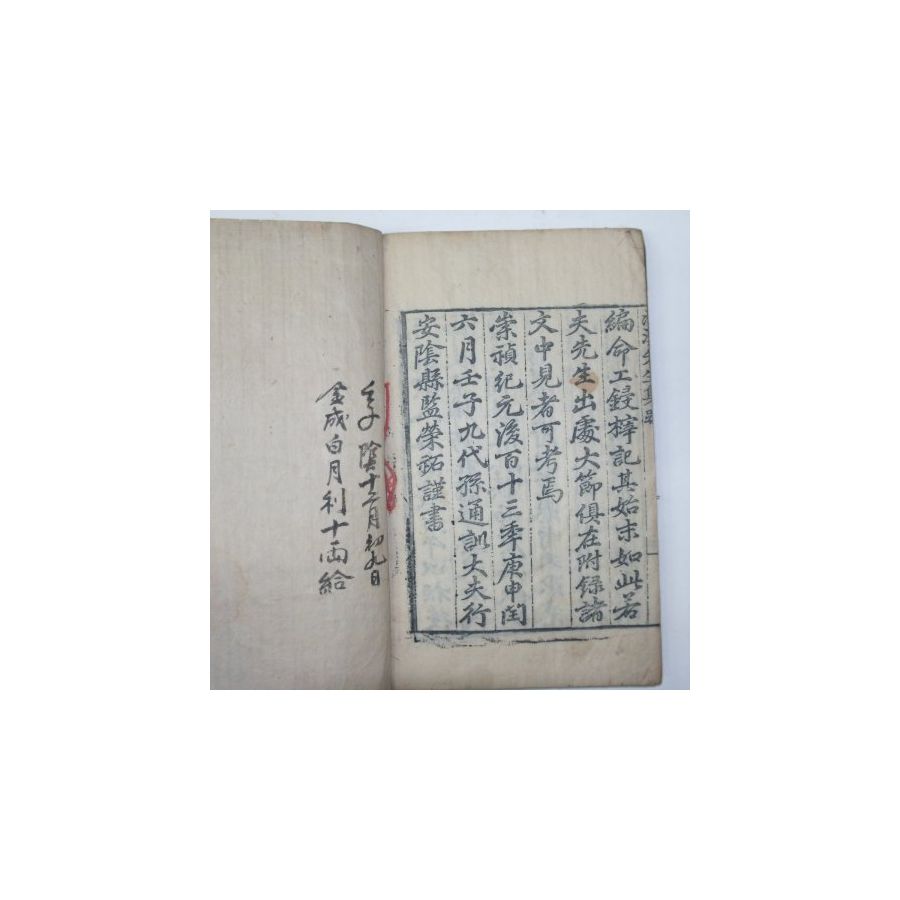 編命工鋟榟記其始末如此若
夫先生出處大節俱在附錄諸
文中見者可考焉
崇禎紀元後百十三年庚申閏
六月壬子九代孫通訓大夫行
安陰縣監榮祏謹書
陰十二月初九日
金成白月利十兩給